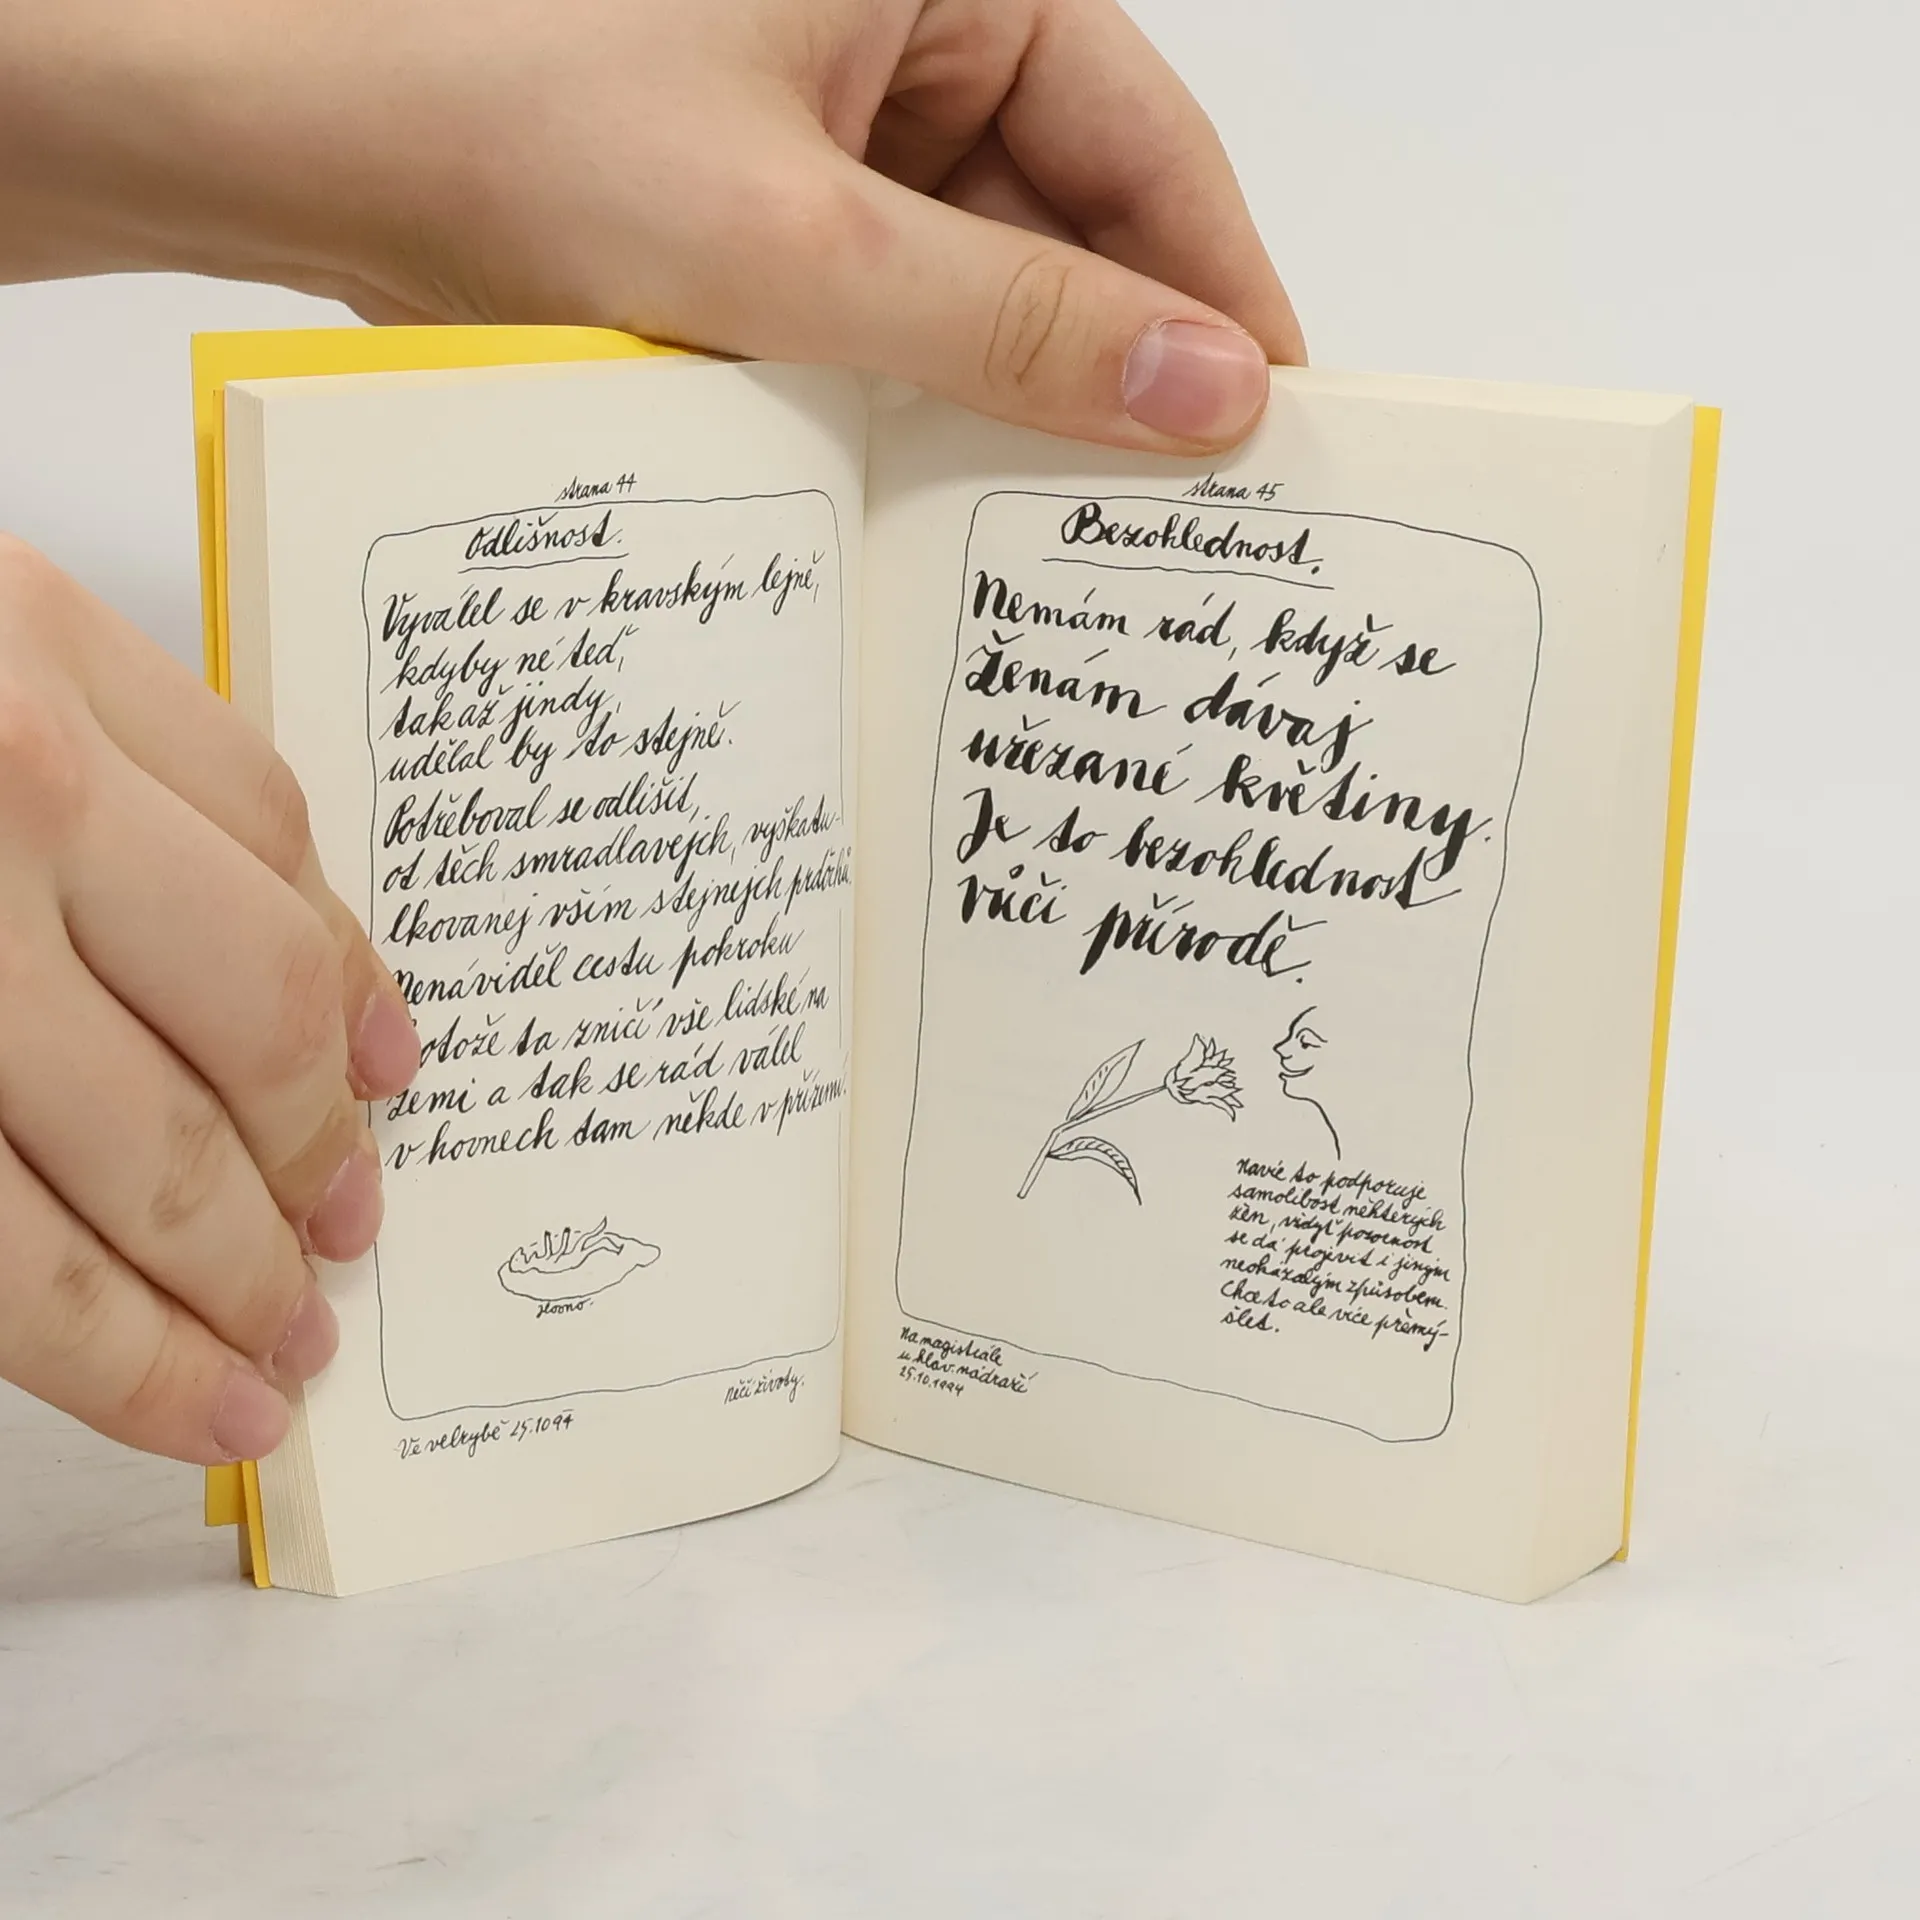 strana 44
Odlišnost.
Vyválel se v kravským lejně,
kdyby né teď,
tak až jindy,
udělal by to stejně.
Potřeboval se odlišit,
od těch smradlavejch, vyškatu-
lkovanej vším stejnejch prdochů.
Nenáviděl cestu pokroku
otože ta zničí vše lidské na
zemi a tak se rád válel
v hovnech tam někde v přízemí.
Hovno.
něčí životy.
Ve velrybě 25.10 94
strana 45
Bezohlednost.
Nemám rád, když se
ženám dávaj
uřezané květiny.
Je to bezohlednost
vůči přírodě.
navíc to podporuje
samolibost některých
žen, vždyť pozornost
se dá projevit i jiným
neokázalým způsobem.
Chce to ale více přemý-
šlet.
Na magistrále
u hlav. nádraží
25.10.1994